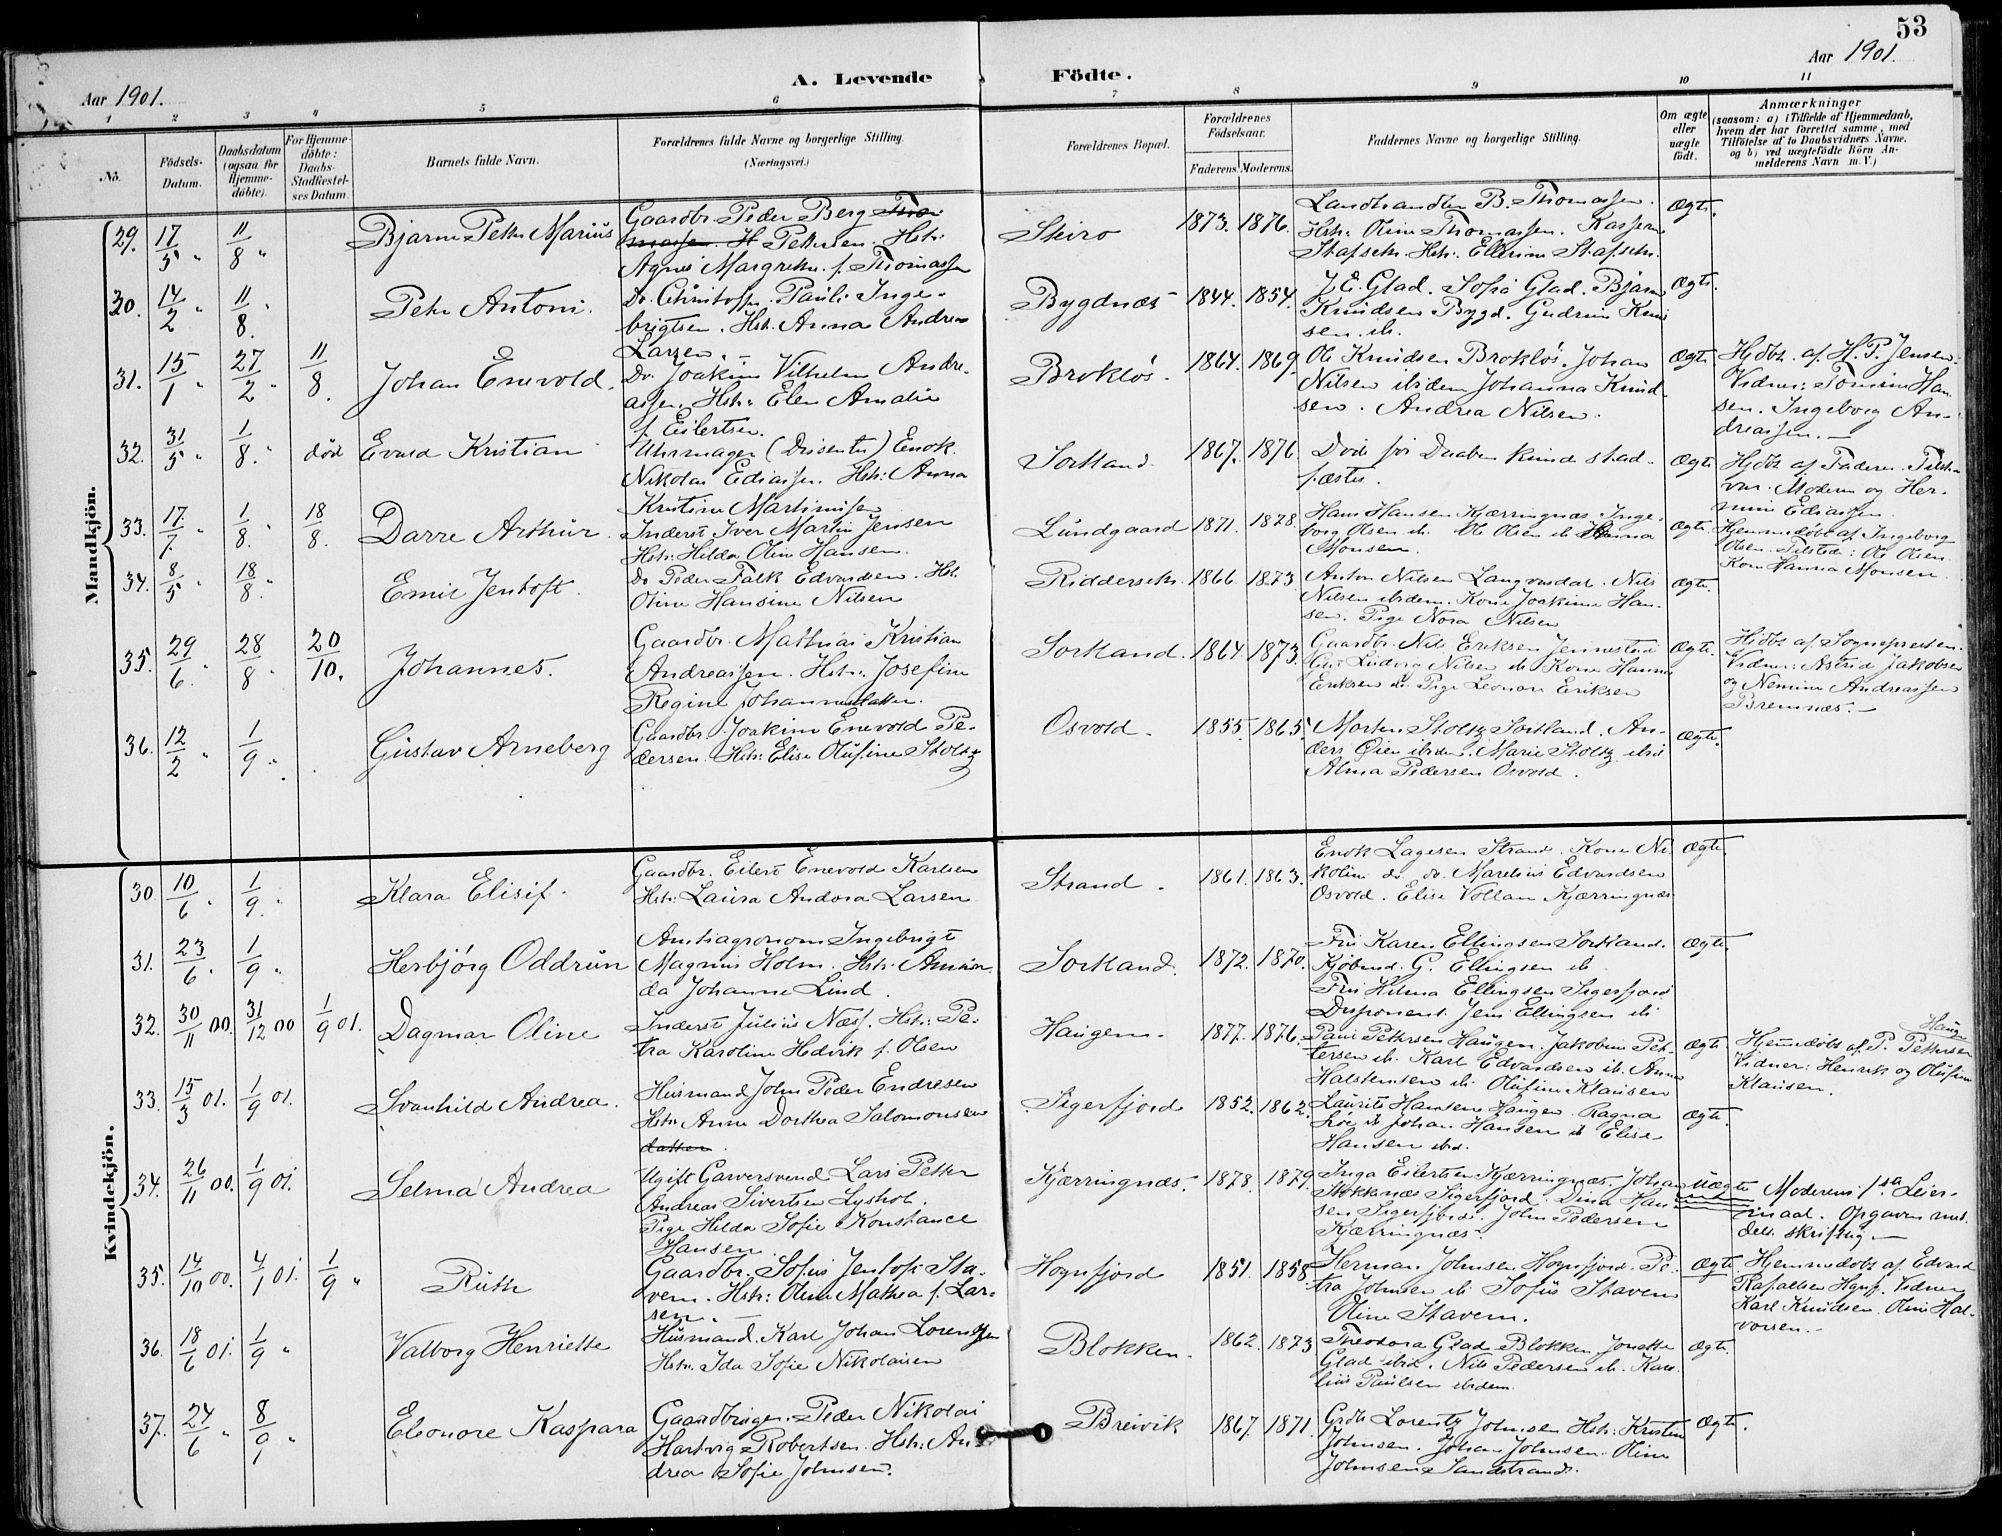 53
Aar 1901.
A. Levende Födte.
Aar 1901.
1 2 3 4 5 6 7 8 9 10 11
No.
Födsels-Datum.
Daabsdatum (ogsaa for Hjemme-döbte).
For Hjemme-döbte: Daabs-Stadfæstel-ses Datum.
Barnets fulde Navn.
Forældrenes fulde Navne og borgerlige Stilling. (Næringsvei.)
Forældrenes Bopæl.
Forældrenes Födselsaar.
Faderens. Moderens.
Faddernes Navne og borgerlige Stilling.
Om ægte eller uægte födt.
Anmærkninger (saasom: a) i Tilfælde af Hjemmedaab, hvem der har forrettet samme, med Tilföielse af to Daabsvidners Navne. og b) ved uægtefödte Börn Anmelderens Navn m. V.)
Mandkjön.
29. 17/5 " 11/8 " Bjarne Peter Marius
Gaardbr. Peder Berg Tho-
massen. H Pettersen Hstr:
Agnes Margrethe f. Thomassen
Skiro 1873. 1876.
Landhandler B. Thomassen.
Hstr: Oline Thomassen. Kaspara
Stafseth. Hstr: Ellerine Stafseth.
Ægte.
30. 14/2 " 11/8. Peter Antoni.
Do. Christoffer Pauli Inge-
brigtsen. Hstr: Anna Andrea
Larsen.
Bygdnæs 1844. 1854.
J. E. Glad. Sofie Glad. Bjarne
Knudsen Bygd. Gudrun Knud
sen. ib.
Ægte.
31. 15/1 " 27/2 " 11/8. Johan Enevold.
Do. Joakim Vilhelm Andre-
assen. Hstr: Elen Amalie
f. Eilertsen.
Brokløs. 1864. 1869.
Ole Knudsen Brokløs. Johan
Nilsen ibidem Johanna Knud-
sen. Andrea Nilsen.
Ægte
Hjdbt. af H. P. Jensen.
Vidner: Tomine Han-
sen. Ingeborg An-
dreassen.
32. 31/5 " 1/8. " død Evald Kristian
Uhrmager (Dissenter) Enok
Nikolai Ediassen. Hstr: Anna
Kristine Martinusen
Sortland. 1867. 1876
Døde før Daaben kunde stad-
fæstes.
Ægte
Hjdbt af Faderen. Tilste-
var. Moderen og Her-
mine Ediassen.
33. 17/7. " 1/8. 18/8. Darre Arthur.
Inderst Iver Martin Jensen
Hstr: Hilda Oline Hansen.
Lundgaard 1871. 1878.
Hans Hansen Kjærringnæs. Inge-
borg Olsen ib. Ole Olsen ib. Hanna
Monsen.
Ægte.
Hjemmedøbt af Ingeborg
Olsen. Tilsted: Ole Olsen
Kone Hanna Monsen.
34. 8/5 " 18/8. Emil Jentoft.
Do Peder Falk Edvardsen. Hst.
Oline Hansine Nilsen
1866 1873.
Anton Nilsen Langvasdal. Nils
Nilsen ibidem. Kone Joakime Han-
sen. Pige Nora Nilsen
Ægte.
35. 29/6. 28/8 " 20/10. Johannes.
Gaardbr. Mathias Kristian
Andreassen. Hstr: Josefine
Regine Johannesdatter.
Sortland. 1864. 1873.
Gaardbr. Nils Eriksen Jennestad
Ludvig Nilsen ib Kone Hanna
Eriksen ib. Pige Leonore Eriksen
Ægte.
Hjdbt af Sognepresten.
Vidner: Astrid Jakobsen
og Nemine Andreassen
Bremnæs.
36. 12/2 " 1/9 ". Gustav Arneberg
Gaardbr. Joakim Enevold Pe-
dersen. Hstr: Elise Olufine Stoltz
Osvold. 1855. 1865.
Morten Stoltz Sortland. An-
ders Øien ibidem. Marie Stoltz ibid
Alma Pedersen Osvold.
Ægte.
Kvindekjön.
30. 10/6 " 1/9. " Klara Elisif.
Gaardbr. Eilert Enevold Karlsen
Hstr: Laura Andora Larsen
Strand. 1861. 1863.
Enok Lagesen Strand. Kone Ni-
koline do. do. Marelius Edvardsen
Osvold. Elise Vollan Kjærringnæs
Ægte.
31. 23/6 " 1/9 " Herbjörg Oddrun
Amtsagronom Ingebrigt
Magnus Holm. Hstr: Aman-
da Johanne Lind.
Sortland. 1872. 1870.
Fru Karen Ellingsen Sortland.
Kjøbmd. G. Ellingsen ib
Fru Hilma Ellingsen Sigerfjord
Disponent. Jens Ellingsen ib
Ægte.
32. 30/11 00. 31/12 00 1/9 01. Dagmar Oline
Inderst Julius Næss. Hstr: Pe-
tra Karoline Hedvik f. Olsen
Haugen. 1877. 1876.
Paul Pettersen Haugen. Jakobine Pet-
tersen ib. Karl Edvardsen ib. Anna
Halstensen ib. Olufine Klausen
Ægte
Hjemmedøbt af P. Pettersen Haug
Vidner: Henrik og Olufine
Klausen.
33. 15/3 01. 1/9 01. Svanhild Andrea.
Husmand John Peder Endresen
Hstr. Anne Dorthea Salomonsen
datter.
Sigerfjord 1852. 1862.
Laurits Hansen Haugen. Ragna
ib Johan Hansen ib Elise
Hansen ibid.
Ægte.
34. 26/11 00. 1/9 01. Selma Andrea
Ugift Garversvend Lars Petter
Andreas Sivertsen Lyshol.
Pige Hilda Sofie Konstance
Hansen.
Kjærringnæs. 1878. 1879.
Inga Eilertsen Kjærringnæs. Johan
Stokknæs Sigerfjord. Dina Han-
sen Sigerfjord. John Pedersen
Kjærringnæs.
uægte
Moderens 1ste Leier-
maal. Opgaven med-
delt skriftlig.
35. 14/10 00. 4/1 01. 1/9 " Ruth
Gaardbr. Sofus Jentoft Sta-
vem. Hstr: Oline Mathea f. Lar-
sen.
Hognfjord 1851. 1858.
Herman Johnsen Hognfjord. Pe-
tra Johnsen ib. Sofus Stavem
Oline Stavem.
Ægte
Hjemmedøbt af Edvard
Rafaelsen Hognf. Vidner
Karl Knudsen. Oline Hal-
vorsen.
36. 18/6 01. 1/9 " Valborg Henriette
Husmand. Karl Johan Lorentzen
Hstr. Ida Sofie Nikolaisen
Blokken. 1862. 1873
Theodora Glad Blokken. Jonette
Glad ibid. Nils Pedersen ib. Kar-
lius Paulsen ibidem.
Ægte.
37. 24/6 " 8/9 " Eleonore Kaspara
Gaardbruger. Peder Nikolai
Hartvig Robertsen. Hstr: An-
drea Sofie Johnsen.
Breivik 1867. 1871.
Grdb. Lorentz Johnsen Hstr: Kristine
Johnsen. Johan Johnsen. Oline
Johnsen Sandstrand.
Ægte.